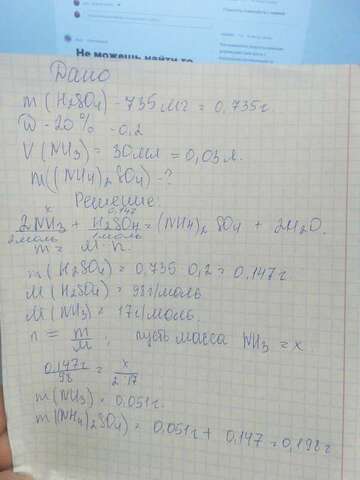 Не можешь найти то
Дано
m(H2SO4) - 735 мг = 0,735 г.
W - 20% - 0,2
V(NH3) = 30 мл = 0,03 л.
m((NH4)2SO4) - ?
Решение.
x 0,147
2NH3 + H2SO4 = (NH4)2SO4 + 2H2O.
2 моль 1 моль
m = M · n.
m(H2SO4) = 0,735 · 0,2 = 0,147 г
M(H2SO4) = 98 г/моль
M(NH3) = 17 г/моль.
n = m/M ; пусть масса NH3 = x.
0,147 г/98 = x/2·17
m(NH3) = 0,051 г.
m(NH4)2SO4) = 0,051 г + 0,147 = 0,198 г